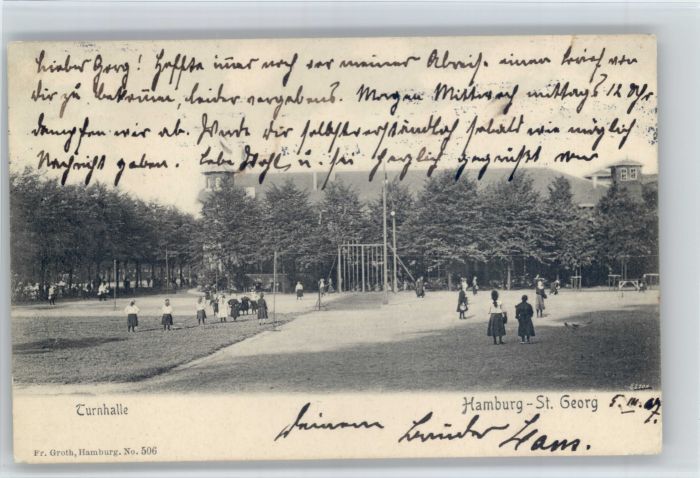 Lieber Georg! Hoffte immer noch vor meiner Abreise einen Brief von
Dir zu bekommen, leider vergebens. Morgen Mittwoch mittags 12 Uhr
dampfen wir ab. Werde Dir selbstverständlich sobald wie möglich
Nachricht geben. Lebe Wohl u. sei herzlich gegrüßt von
Turnhalle
Hamburg - St. Georg
5. III. 07.
Deinem Bruder Hans.
Fr. Groth, Hamburg. No. 506